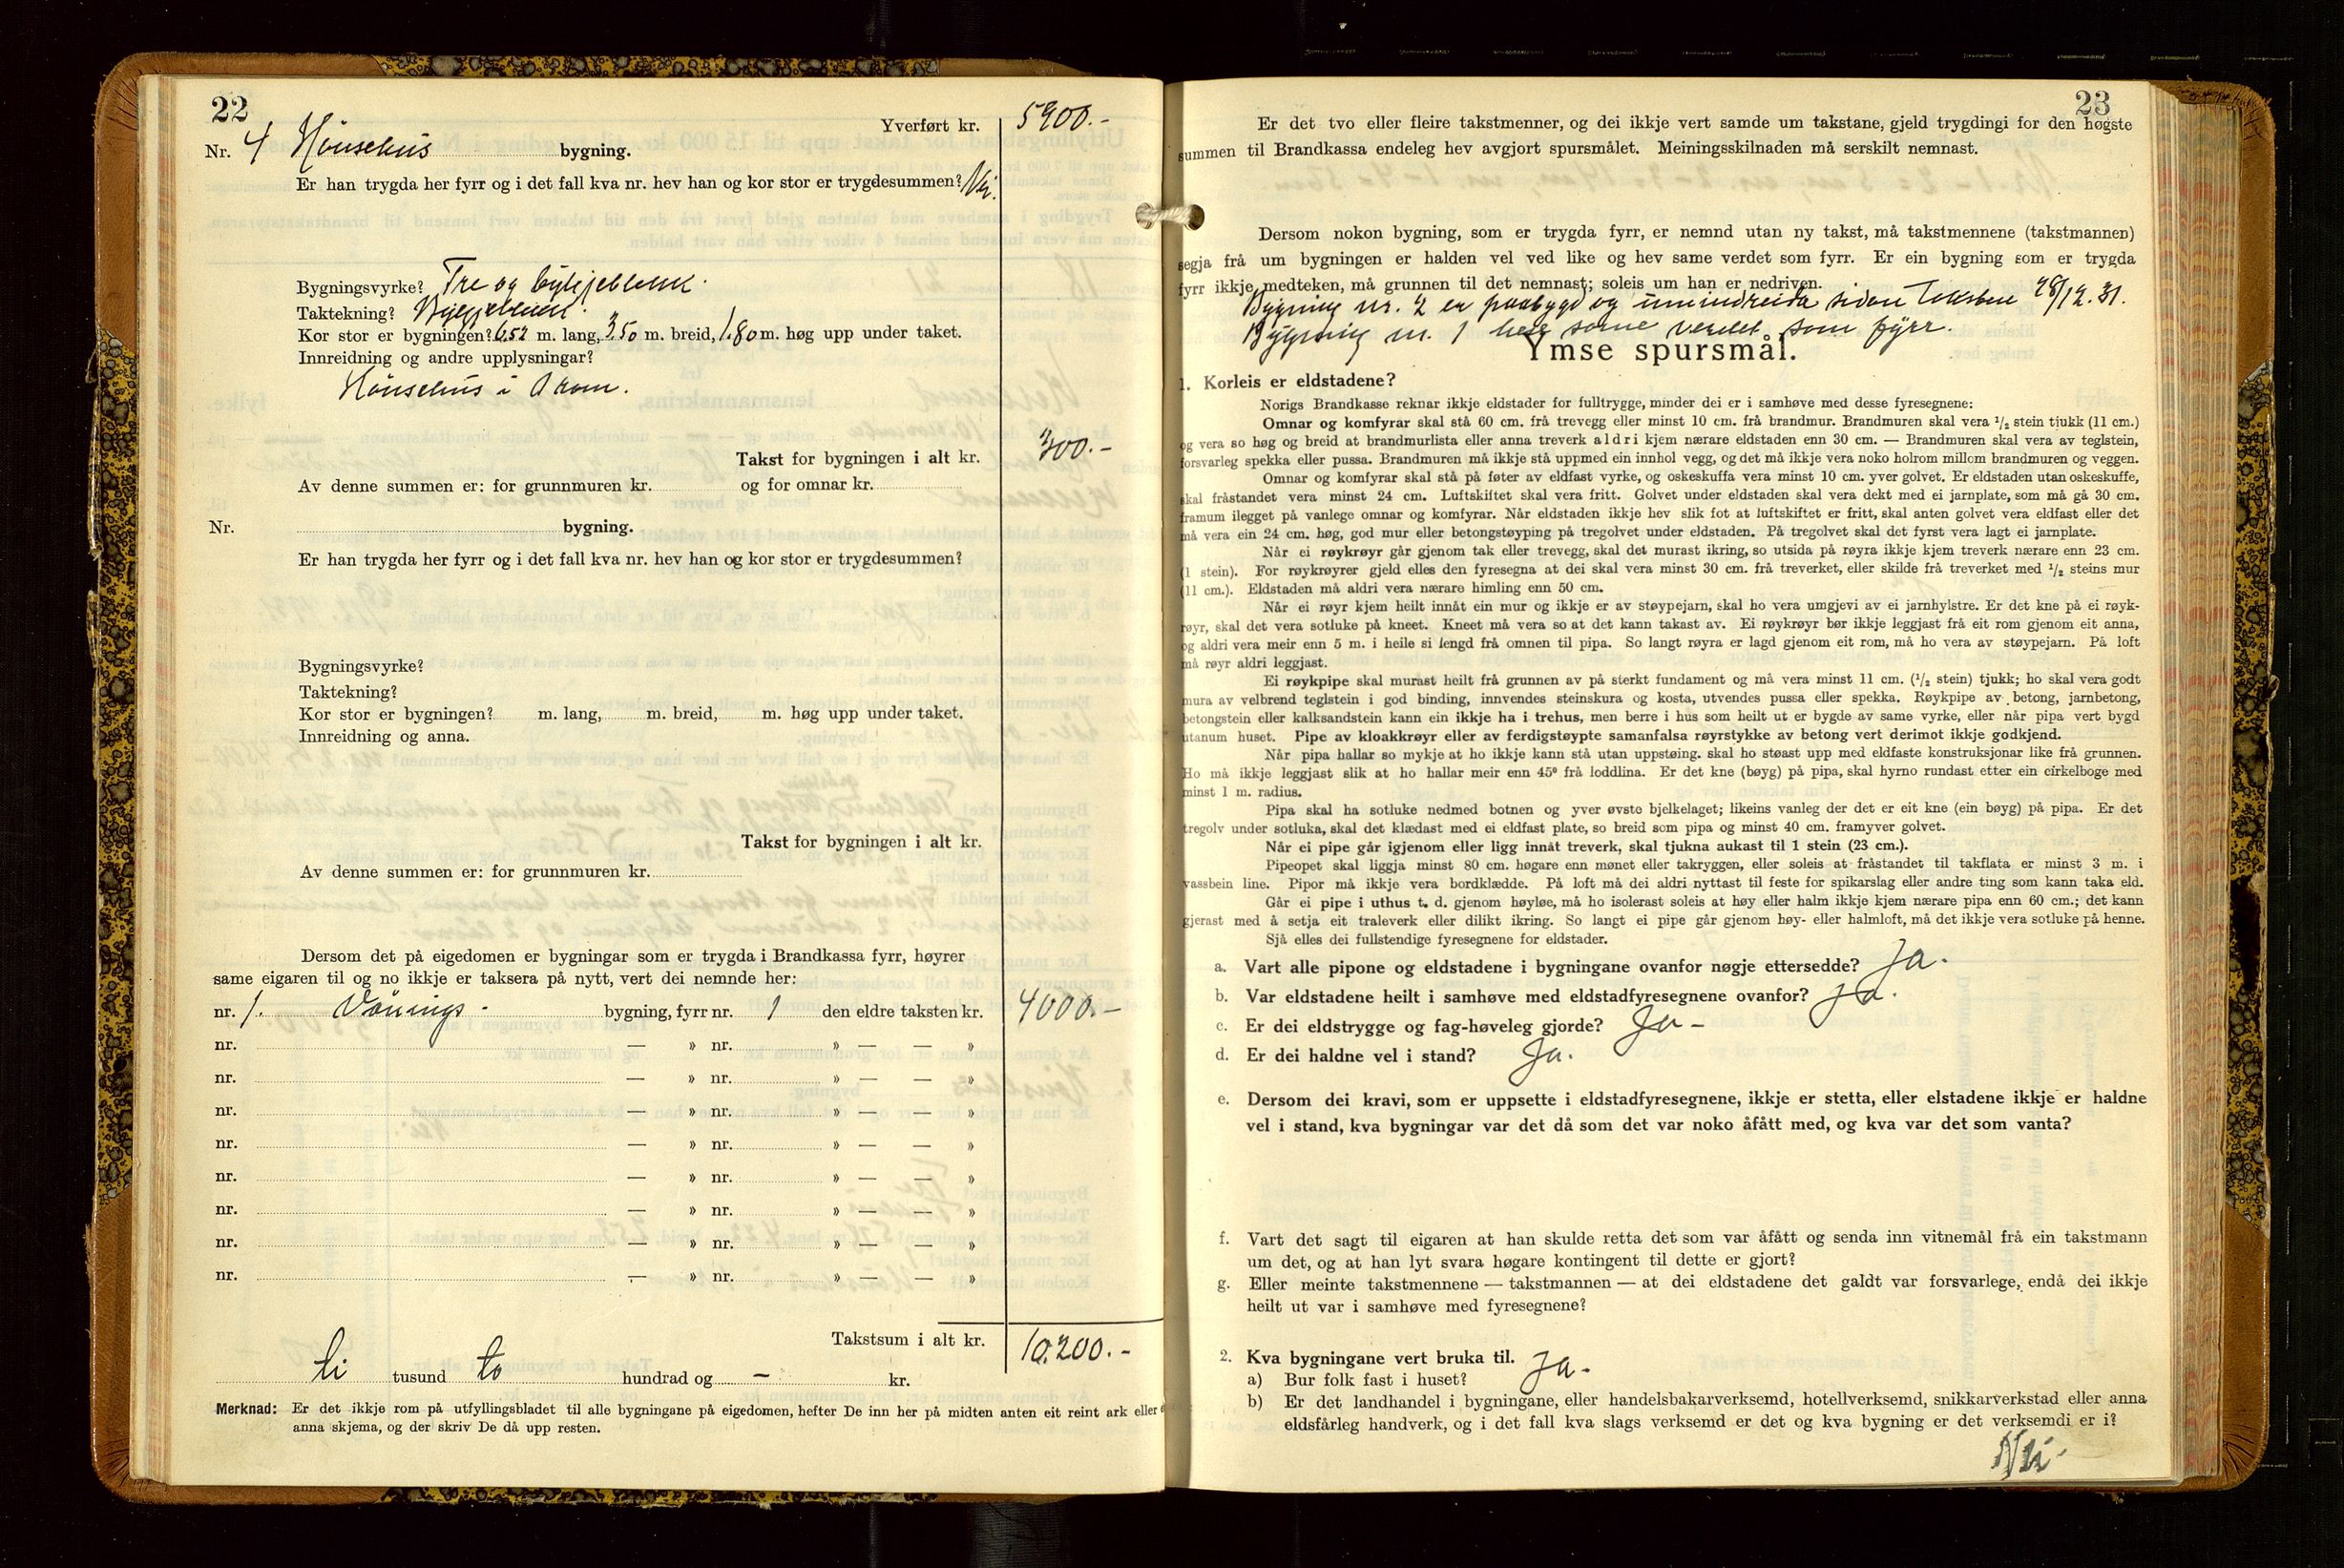 22
Yverført kr. 5900.-
Nr. 4 Hönsehus bygning.
Er han trygda her fyrr og i det fall kva nr. hev han og kor stor er trygdesummen? Nei.
Bygningsvyrke? Tre og bylgjeblekk.
Taktekning? Bylgjeblekk.
Kor stor er bygningen? 6.52 m. lang, 3,50 m. breid, 1.80 m. høg upp under taket.
Innreidning og andre upplysningar?
Hönsehus i 1 rom.
Takst for bygningen i alt kr. 300.-
Av denne summen er: for grunnmuren kr. og for omnar kr.
Nr. bygning.
Er han trygda her fyrr og i det fall kva nr. hev han og kor stor er trygdesummen?
Bygningsvyrke?
Taktekning?
Kor stor er bygningen? m. lang, m. breid, m. høg upp under taket.
Innreidning og anna.
Takst for bygningen i alt kr.
Av denne summen er: for grunnmuren kr.
Dersom det på eigedomen er bygningar som er trygda i Brandkassa fyrr, høyrer
same eigaren til og no ikkje er taksera på nytt, vert dei nemnde her:
nr. 1. Vånings- bygning, fyrr nr. 1 den eldre taksten kr. 4000.-
nr. — » nr. » — — »
nr. — » nr. » — — »
nr. — » nr. » — — »
nr. — » nr. » — — »
nr. — » nr. » — — »
nr. — » nr. » — — »
nr. — » nr. » — — »
nr. — » nr. » — — »
Takstsum i alt kr. 10.200.-
ti tusund to hundrad og - kr.
Merknad: Er det ikkje rom på utfyllingsbladet til alle bygningane på eigedomen, hefter De inn her på midten anten eit reint ark eller
anna skjema, og der skriv De då upp resten.
23
Er det tvo eller fleire takstmenner, og dei ikkje vert samde um takstane, gjeld trygdingi for den høgste
summen til Brandkassa endeleg hev avgjort spursmålet. Meiningsskilnaden må serskilt nemnast.
Dersom nokon bygning, som er trygda fyrr, er nemnd utan ny takst, må takstmennene (takstmannen)
segja frå um bygningen er halden vel ved like og hev same verdet som fyrr. Er ein bygning som er trygda
fyrr ikkje medteken, må grunnen til det nemnast; soleis um han er nedriven.
Bygning nr. 2 er paabygd og umindreida sidan taksten 28/12.31.
Bygning nr. 1 hev same verdet som fyrr.
Ymse spursmål.
1. Korleis er eldstadene?
Norigs Brandkasse reknar ikkje eldstader for fulltrygge, minder dei er i samhøve med desse fyresegnene:
Omnar og komfyrar skal stå 60 cm. frå trevegg eller minst 10 cm. frå brandmur. Brandmuren skal vera ½ stein tjukk (11 cm.)
og vera so høg og breid at brandmurlista eller anna treverk aldri kjem nærare eldstaden enn 30 cm. — Brandmuren skal vera av teglstein,
forsvarleg spekka eller pussa. Brandmuren må ikkje stå uppmed ein innhol vegg, og det må ikkje vera noko holrom millom brandmuren og veggen.
Omnar og komfyrar skal stå på føter av eldfast vyrke, og oskeskuffa vera minst 10 cm. yver golvet. Er eldstaden utan oskeskuffe,
skal fråstandet vera minst 24 cm. Luftskiftet skal vera fritt. Golvet under eldstaden skal vera dekt med ei jarnplate, som må gå 30 cm.
framum ilegget på vanlege omnar og komfyrar. Når eldstaden ikkje hev slik fot at luftskiftet er fritt, skal anten golvet vera eldfast eller det
må vera ein 24 cm. høg, god mur eller betongstøyping på tregolvet under eldstaden. På tregolvet skal det fyrst vera lagt ei jarnplate.
Når ei røykrøyr går gjenom tak eller trevegg, skal det murast ikring, so utsida på røyra ikkje kjem treverk nærare enn 23 cm.
(1 stein). For røykrøyrer gjeld elles den fyresegna at dei skal vera minst 30 cm. frå treverket, eller skilde frå treverket med ½ steins mur
(11 cm.). Eldstaden må aldri vera nærare himling enn 50 cm.
Når ei røyr kjem heilt innåt ein mur og ikkje er av støypejarn, skal ho vera umgjevi av ei jarnhylstre. Er det kne på ei røyk-
røyr, skal det vera sotluke på kneet. Kneet må vera so at det kann takast av. Ei røykrøyr bør ikkje leggjast frå eit rom gjenom eit anna,
og aldri vera meir enn 5 m. i heile si lengd frå omnen til pipa. So langt røyra er lagd gjenom eit rom, må ho vera av støypejarn. På loft
må røyr aldri leggjast.
Ei røykpipe skal murast heilt frå grunnen av på sterkt fundament og må vera minst 11 cm. (½ stein) tjukk; ho skal vera godt
mura av velbrend teglstein i god binding, innvendes steinskura og kosta, utvendes pussa eller spekka. Røykpipe av betong, jarnbetong,
betongstein eller kalksandstein kann ein ikkje ha i trehus, men berre i hus som heilt ut er bygde av same vyrke, eller når pipa vert bygd
utanum huset. Pipe av kloakkrøyr eller av ferdigstøypte samanfalsa røyrstykke av betong vert derimot ikkje godkjend.
Når pipa hallar so mykje at ho ikkje kann stå utan uppstøing. skal ho støast upp med eldfaste konstruksjonar like frå grunnen.
Ho må ikkje leggjast slik at ho hallar meir enn 45° frå loddlina. Er det kne (bøyg) på pipa, skal hyrno rundast etter ein cirkelboge med
minst 1 m. radius.
Pipa skal ha sotluke nedmed botnen og yver øvste bjelkelaget; likeins vanleg der det er eit kne (ein bøyg) på pipa. Er det
tregolv under sotluka, skal det klædast med ei eldfast plate, so breid som pipa og minst 40 cm. framyver golvet.
Når ei pipe går igjenom eller ligg innåt treverk, skal tjukna aukast til 1 stein (23 cm.).
Pipeopet skal liggja minst 80 cm. høgare enn mønet eller takryggen, eller soleis at fråstandet til takflata er minst 3 m. i
vassbein line. Pipor må ikkje vera bordklædde. På loft må dei aldri nyttast til feste for spikarslag eller andre ting som kann taka eld.
Går ei pipe i uthus t. d. gjenom høyløe, må ho isolerast soleis at høy eller halm ikkje kjem nærare pipa enn 60 cm.; det kann
gjerast med å setja eit traleverk eller dilikt ikring. So langt ei pipe går gjenom høy- eller halmloft, må det ikkje vera sotluke på henne.
Sjå elles dei fullstendige fyresegnene for eldstader.
a. Vart alle pipone og eldstadene i bygningane ovanfor nøgje ettersedde? Ja.
b. Var eldstadene heilt i samhøve med eldstadfyresegnene ovanfor? Ja.
c. Er dei eldstrygge og fag-høveleg gjorde? Ja -
d. Er dei haldne vel i stand? Ja.
e. Dersom dei kravi, som er uppsette i eldstadfyresegnene, ikkje er stetta, eller elstadene ikkje er haldne
vel i stand, kva bygningar var det då som det var noko åfått med, og kva var det som vanta?
f. Vart det sagt til eigaren at han skulde retta det som var åfått og senda inn vitnemål frå ein takstmann
um det, og at han lyt svara høgare kontingent til dette er gjort?
g. Eller meinte takstmennene — takstmannen — at dei eldstadene det galdt var forsvarlege, endå dei ikkje
heilt ut var i samhøve med fyresegnene?
2. Kva bygningane vert bruka til.
a) Bur folk fast i huset? Ja -
b) Er det landhandel i bygningane, eller handelsbakarverksemd, hotellverksemd, snikkarverkstad eller anna
eldsfårleg handverk, og i det fall kva slags verksemd er det og kva bygning er det verksemdi er i?
Nei-